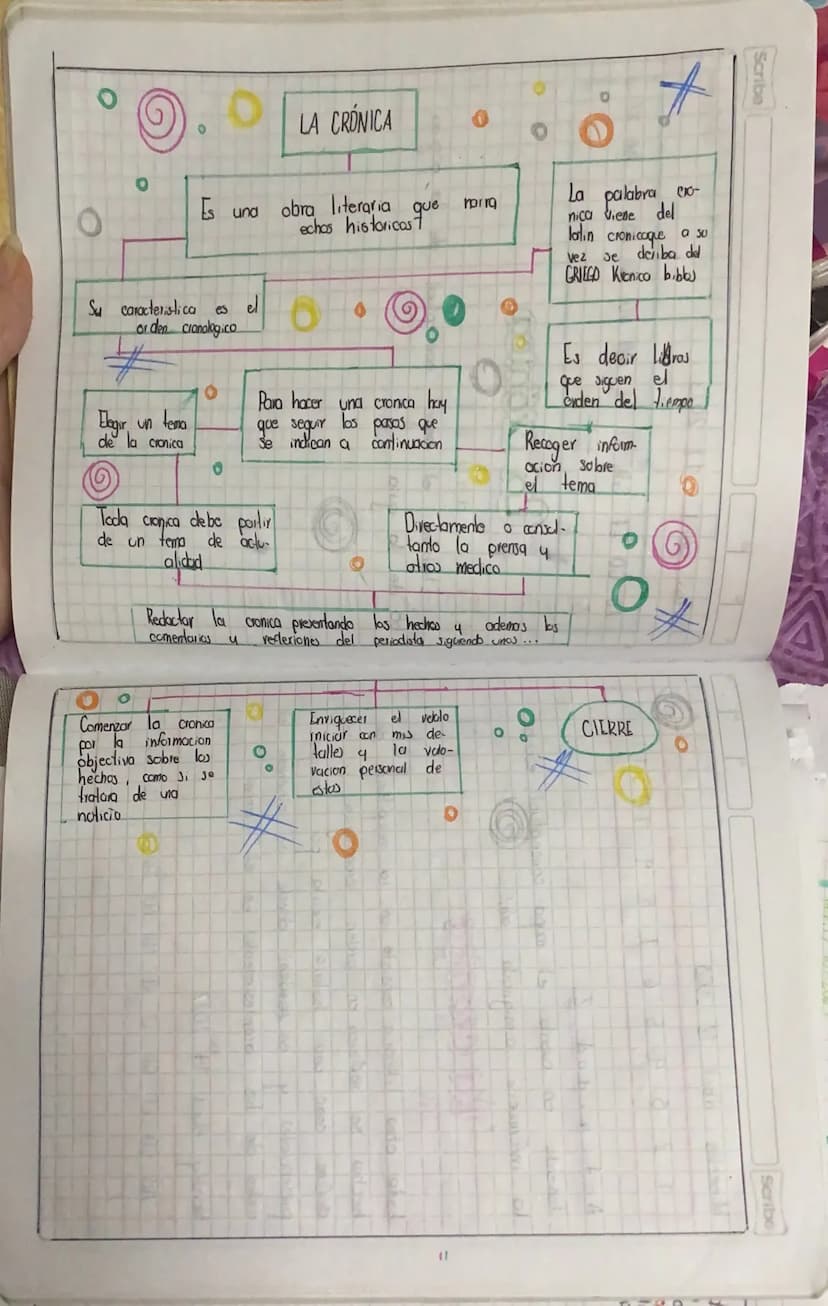 Scribe
LA CRÓNICA
Es una obra literaria que narra
echos historicos
La palabra cro-
nica viene del
latin cronicaque a su
vez se deriba del
GRIEGO Kronico biblos
Su caracteristica es el
orden cronologico
Es decir libros
que siguen el
orden del tiempo
Elegir un tema
de la cronica
Para hacer una cronca hay
que seguir los pasos que
se indican a continuacion
Recoger inform-
acion sobre
el tema
Toda cronica debe partir
de un tema de actu-
alidad
Directamente o consul-
tanto la prensa y
otros medico
Redactar la cronica presentando los hechos y ademas los
comentarios y reflexiones del periodista siguiendo unos...
Comenzar la cronica
por la informacion
objectiva sobre los
hechos, como si se
tratara de una
noticio
Enriquecer el
iniciar con mis de-
talles y la valo-
racion personal de
estos
CIERRE
Scribe
11